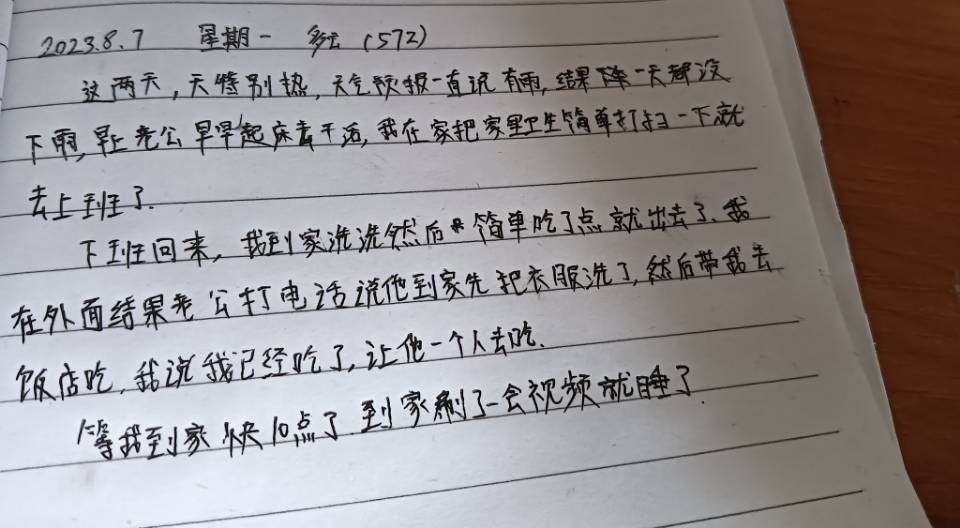 2023.8.7 星期一 多云 (572)
这两天,天特别热,天气预报一直说有雨,结果 一天都没
下雨,早上老公早早起床着干活,我在家把家里卫生简单打扫一下就
去上班了.
下班回来,我到家洗洗然后 简单吃了点就出去了.我
在外面结果老公打电话说他到家先把衣服洗了,然后带我去
饭店吃,我说我已经吃了,让他一个人去吃.
等我到家快10点了 到家刷了一会视频就睡了.